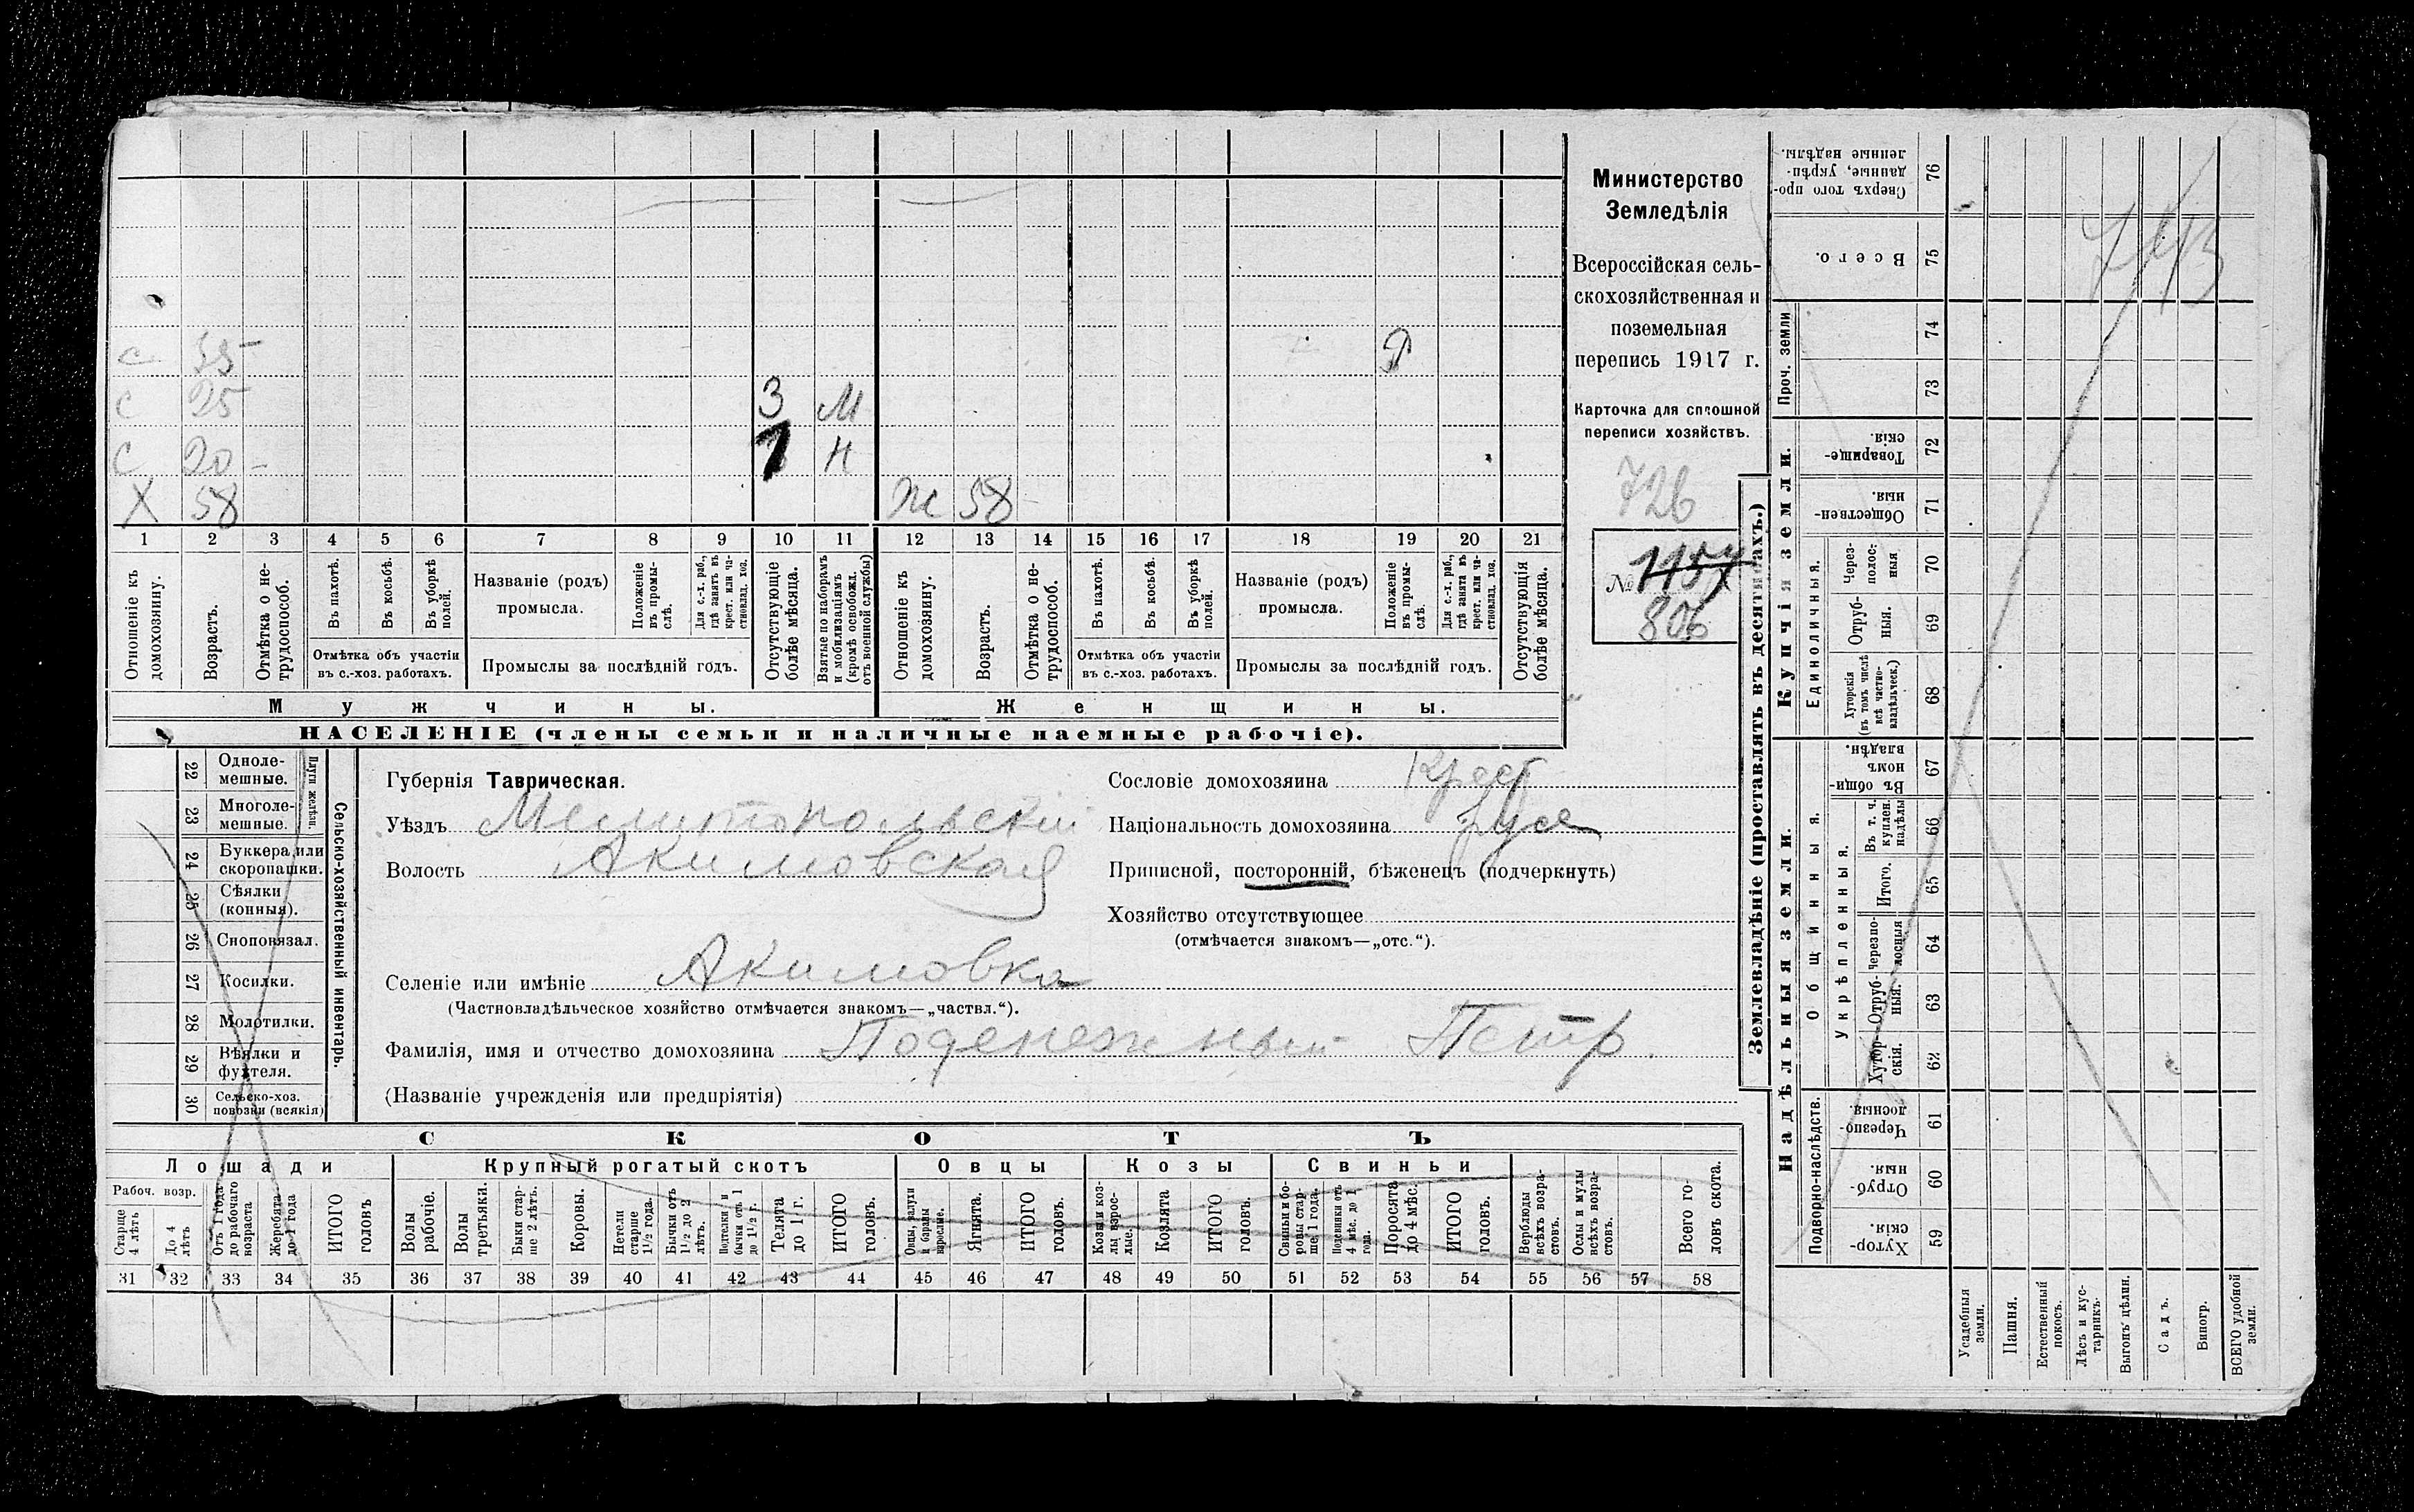 с 35
с 25 3 М
с 20 1 Н
Х 58 ж 58
1 2 3 4 5 6 7 8 9 10 11 12 13 14 15 16 17 18 19 20 21
Отношеніе къ домохозяину.
Возрастъ.
Отмѣтка о не-трудоспособ.
Въ пахотѣ.
Въ косьбѣ.
Въ уборкѣ полей.
Отмѣтка объ участіи
въ с.-хоз. работахъ.
Названіе (родъ)
промысла.
Положеніе въ промы-слѣ.
Для с.-х. раб., гдѣ занятъ въ крест. или ча-стновлад. хоз.
Промыслы за послѣдній годъ.
Отсутствующіе болѣе мѣсяца.
Взятые по наборамъ и мобилизаціямъ (кромѣ освобожд. отъ военной службы)
Отношеніе къ домохозяину.
Возрастъ.
Отмѣтка о не-трудоспособ.
Въ пахотѣ.
Въ косьбѣ.
Въ уборкѣ полей.
Отмѣтка объ участіи
въ с.-хоз. работахъ.
Названіе (родъ)
промысла.
Положеніе въ промы-слѣ.
Для с.-х. раб., гдѣ занята въ крест. или ча-стновлад. хоз.
Промыслы за послѣдній годъ.
Отсутствующія болѣе мѣсяца.
Мужчины.
Женщины.
НАСЕЛЕНІЕ (члены семьи и наличные наемные рабочіе).
Министерство
Земледѣлія
Всероссійская сель-
скохозяйственная и
поземельная
перепись 1917 г.
Карточка для сплошной
переписи хозяйствъ.
726
№ 1157
806
Сельско-хозяйственный инвентарь.
Плуги желѣзн.
22 Одноле-
мешные.
23 Многоле-
мешные.
24 Буккера или
скоропашки.
25 Сѣялки
(конныя).
26 Сноповязал.
27 Косилки.
28 Молотилки.
29 Вѣялки и
фухтеля.
30 Сельско-хоз.
повозки (всякія)
Губернія Таврическая.
Уѣздъ Мелитопольскій
Волость Акимовская
Селеніе или имѣніе Акимовка
(Частновладѣльческое хозяйство отмѣчается знакомъ—„частвл.“).
Фамилія, имя и отчество домохозяина Поденежный Петр
(Названіе учрежденія или предпріятія)
Сословіе домохозяина Крест
Національность домохозяина русс
Приписной, посторонній, бѣженецъ (подчеркнуть)
Хозяйство отсутствующее
(отмѣчается знакомъ—„отс.“).
СКОТЪ
Лошади
Крупный рогатый скотъ
Овцы
Козы
Свиньи
Рабоч. возр.
Старше 4 лѣтъ
До 4 лѣтъ
Отъ 1 года до рабочаго возраста
Жеребята до 1 года
ИТОГО головъ
Волы рабочіе.
Волы третьяки.
Быки стар-ше 2 лѣтъ.
Коровы.
Нетели старше 1½ года.
Бычки отъ 1½ до 2 лѣтъ.
Подтелки и бычки отъ 1 до 1½ г.
Телята до 1 г.
ИТОГО головъ.
Овцы, валухи и бараны взрослые.
Ягнята.
ИТОГО головъ.
Козы и коз-лы взрос-лые.
Козлята
ИТОГО головъ.
Свиньи и бо-ровы стар-ше 1 года.
Подсвинки отъ 4 мѣс. до 1 года.
Поросята до 4 мѣс.
ИТОГО головъ.
Верблюды всѣхъ возра-стовъ.
Ослы и мулы всѣхъ возра-стовъ.
Всего го-ловъ скота.
31 32 33 34 35 36 37 38 39 40 41 42 43 44 45 46 47 48 49 50 51 52 53 54 55 56 57 58
Землевладѣніе (проставлять въ десятинахъ.)
Сверхъ того про-данные, укрѣп-ленные надѣлы. 76
Всего. 75
Проч. земли
74
73
Купчія земли.
Товарище-скія. 72
Обществен-ныя. 71
Единоличныя.
Через-полос-ныя 70
Отруб-ныя. 69
Хуторскія (въ томъ числѣ всѣ частно-владѣльческ.) 68
Надѣльныя земли.
Общинныя.
Въ общин-номъ владѣн. 67
Укрѣпленныя.
Въ т. ч. куплен. надѣлы 66
Итого. 65
Черезпо-лосныя 64
Отруб-ныя. 63
Хутор-скія. 62
Подворно-наслѣдств.
Черезпо-лосныя. 61
Отруб-ныя. 60
Хутор-скія. 59
Усадебныя земли.
Пашня.
Естественный покосъ.
Лѣсъ и кус-тарникъ.
Выгонъ цѣлин.
Садъ.
Виногр.
ВСЕГО удобной земли.